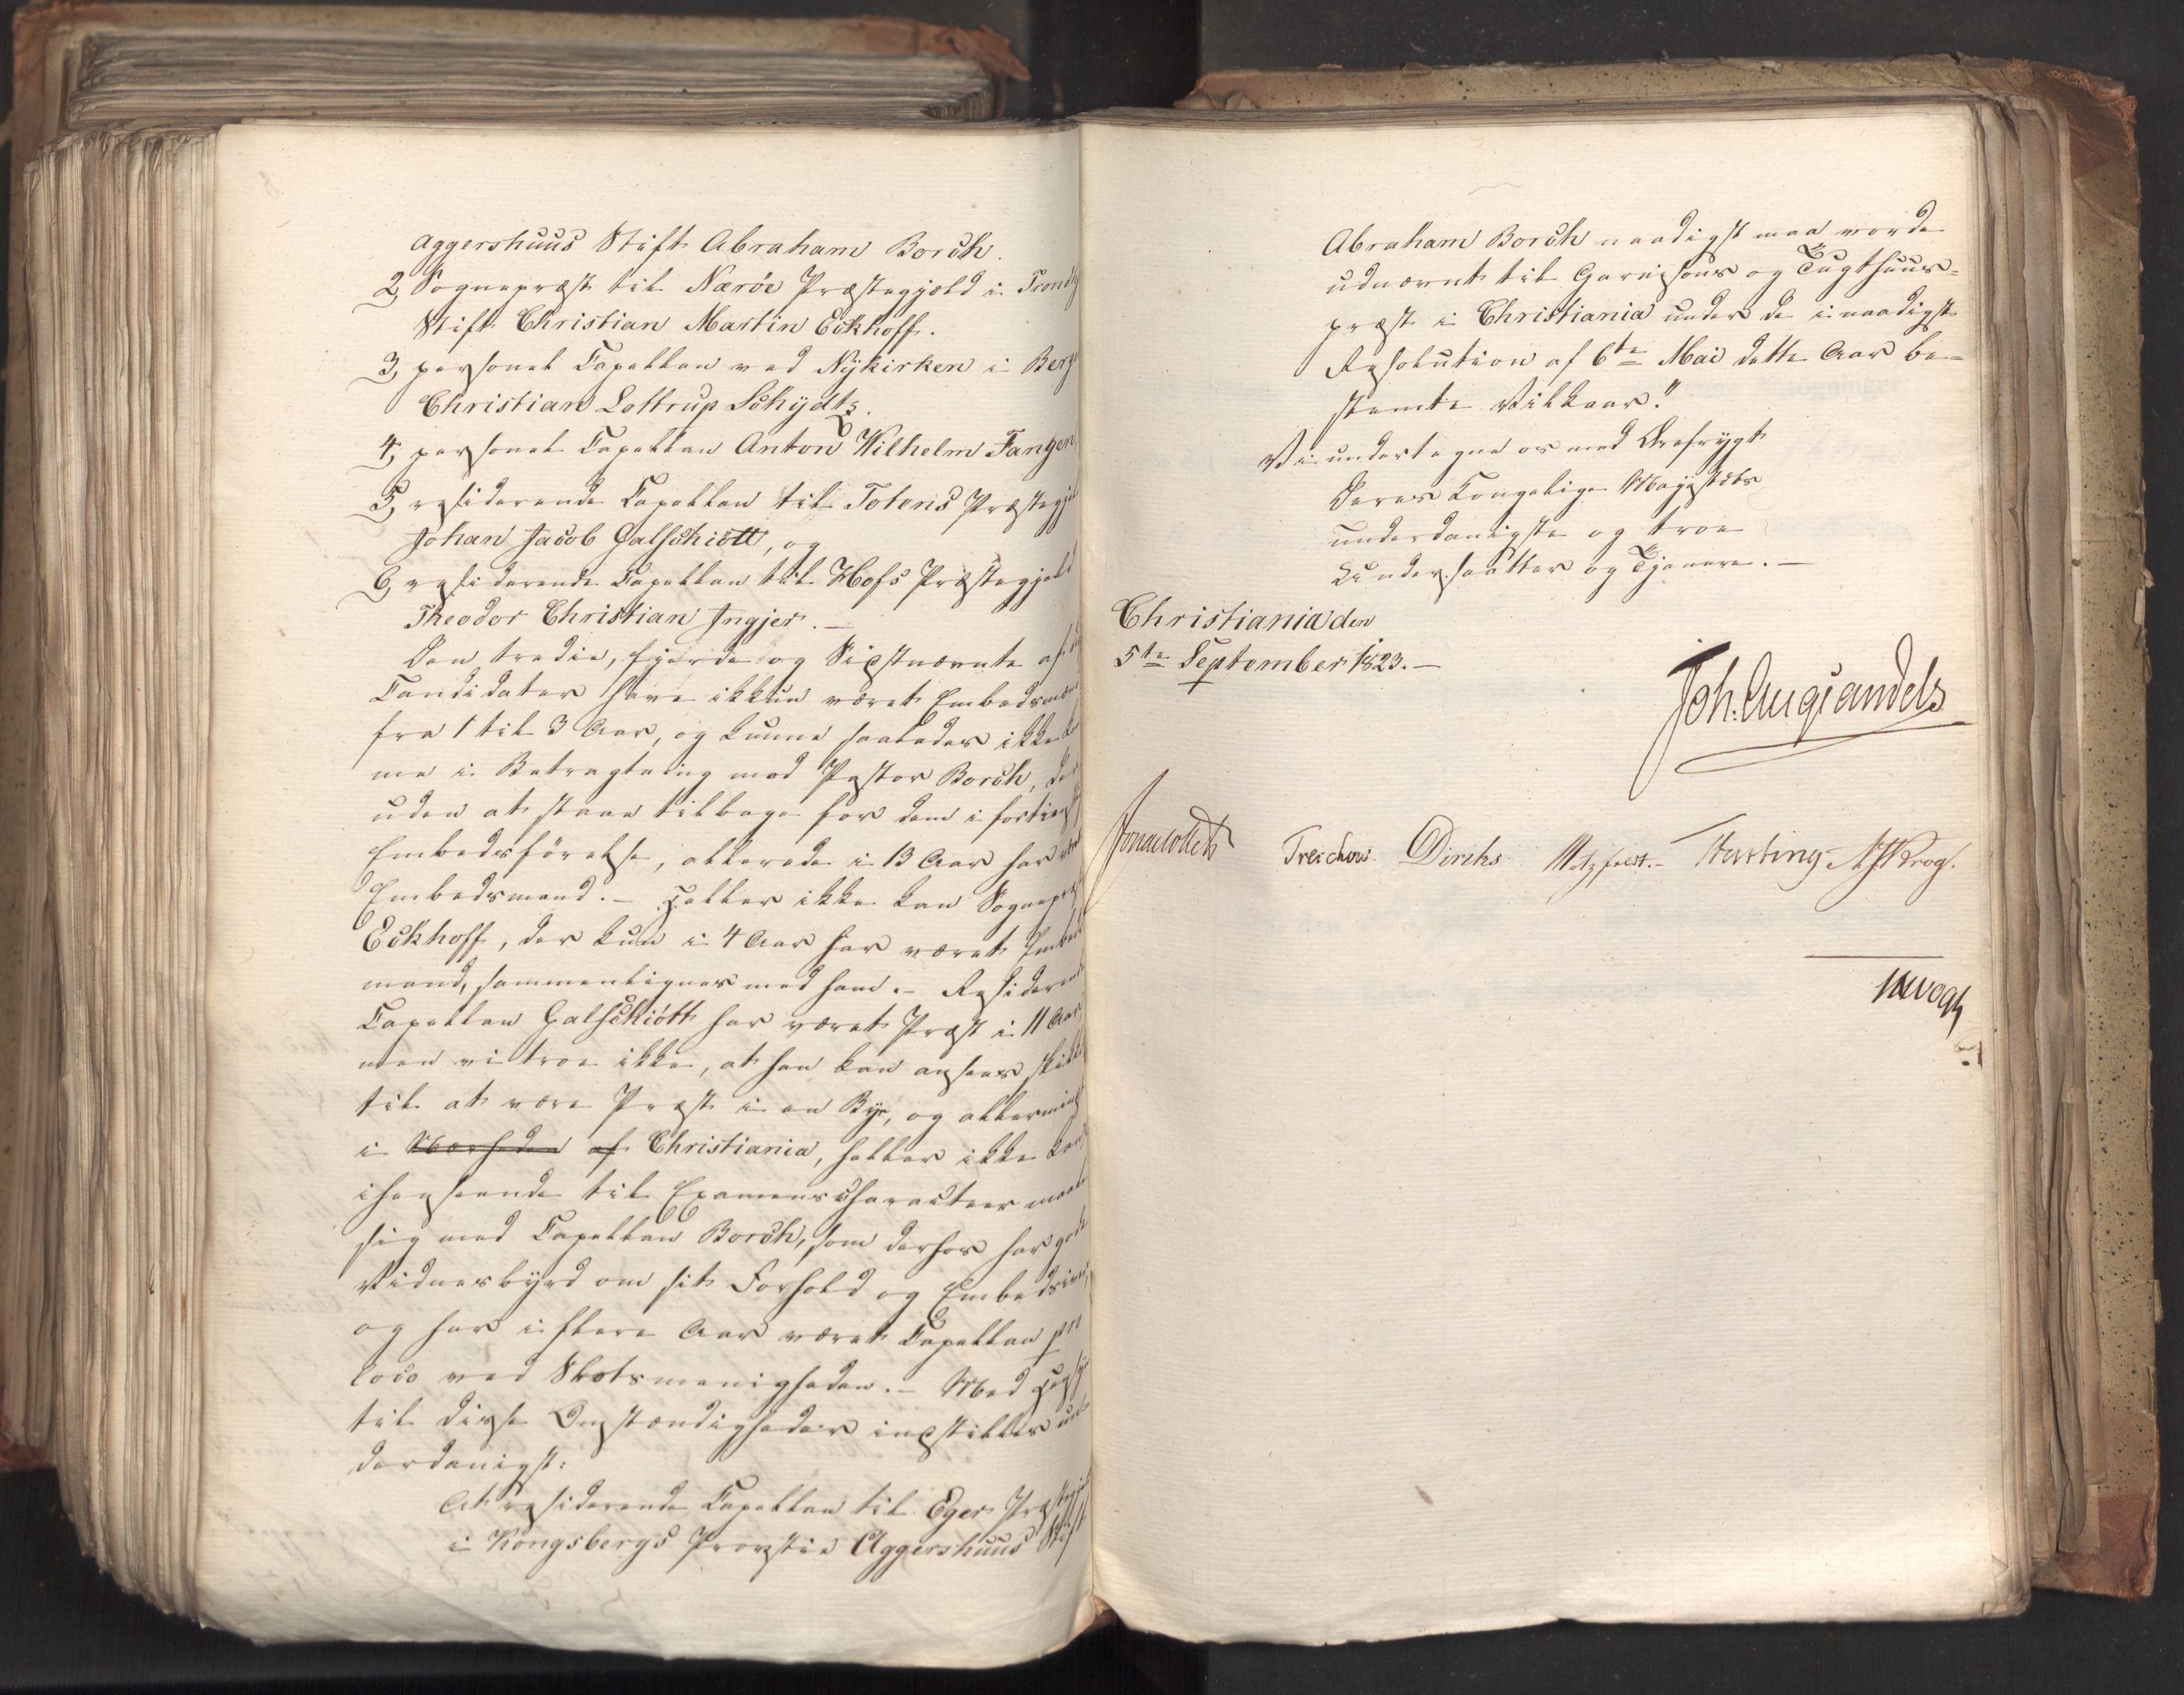 Aggershuus Stift Abraham Borch.
2, Sognepræst til Nærøe Præstegjeld i Trondh
Stift Christian Martin Eckhoff.
3, personel Capellan ved Nykirken i Berge
Christian Lottrup Schydtz.
4, personel Capellan Anton Wilhelm Fangen
5, residerende Capellan til Totens Præstegje
Johan Jacob Galschiött, og
6, residerende Capellan til Hofs Præstegjeld
Theodor Christian Ingjer. —
Den tredie, fjerde og Sidstnævnte af
Candidater have ikkun været Embedsmæn
fra 1 til 3 Aar, og kunne saaledes ikke kom
me i Betragtning mod Pastor Borch, der
uden at staae tilbage for dem i fortienstl
Embedsførelse, allerede i 13 Aar har været
Embedsmand. – Heller ikke kan Sognepræst
Eckhoff, der kun i 4 Aar har været Embeds
mand, sammenlignes med ham. – Residerende
Capellan Galschiött har været Præst i 11 Aar
men vi troe ikke, at han kan ansees skikket
til at være Præst i en Bye, og allermindst
i Nærheden af Christiania, heller ikke kan
ihenseende til Examenscharacteer maale
sig med Capellan Borch, som derhos har gode
Vidnesbyrd om sit Forhold og Embedsiver,
og har i flere Aar været Capellan pro
loco ved Slotsmenigheden. – Med Hensyn
til disse Omstændigheder indstilles un
derdanigst:
At residerende Capellan til Eger Præstegjeld
i Kongsbergs Provstie Aggershuus Stift
Abraham Borch naadigst maa vorde
udnævnt til Garnisons og Tugthuus=
præst i Christiania under de i naadigst
Resolution af 6te Mai dette Aar be=
stemte Vilkaar."
Vi undertegne os med Ærefrygt
Deres Kongelige Majestæts
underdanigste og troe
Undersaatter og Tjenere. —
Christiania den
5te September 1823. —
Joh. Aug Sandels
Jonas Collett Treschow. Diriks Motzfeldt. – Fasting NJKrog.